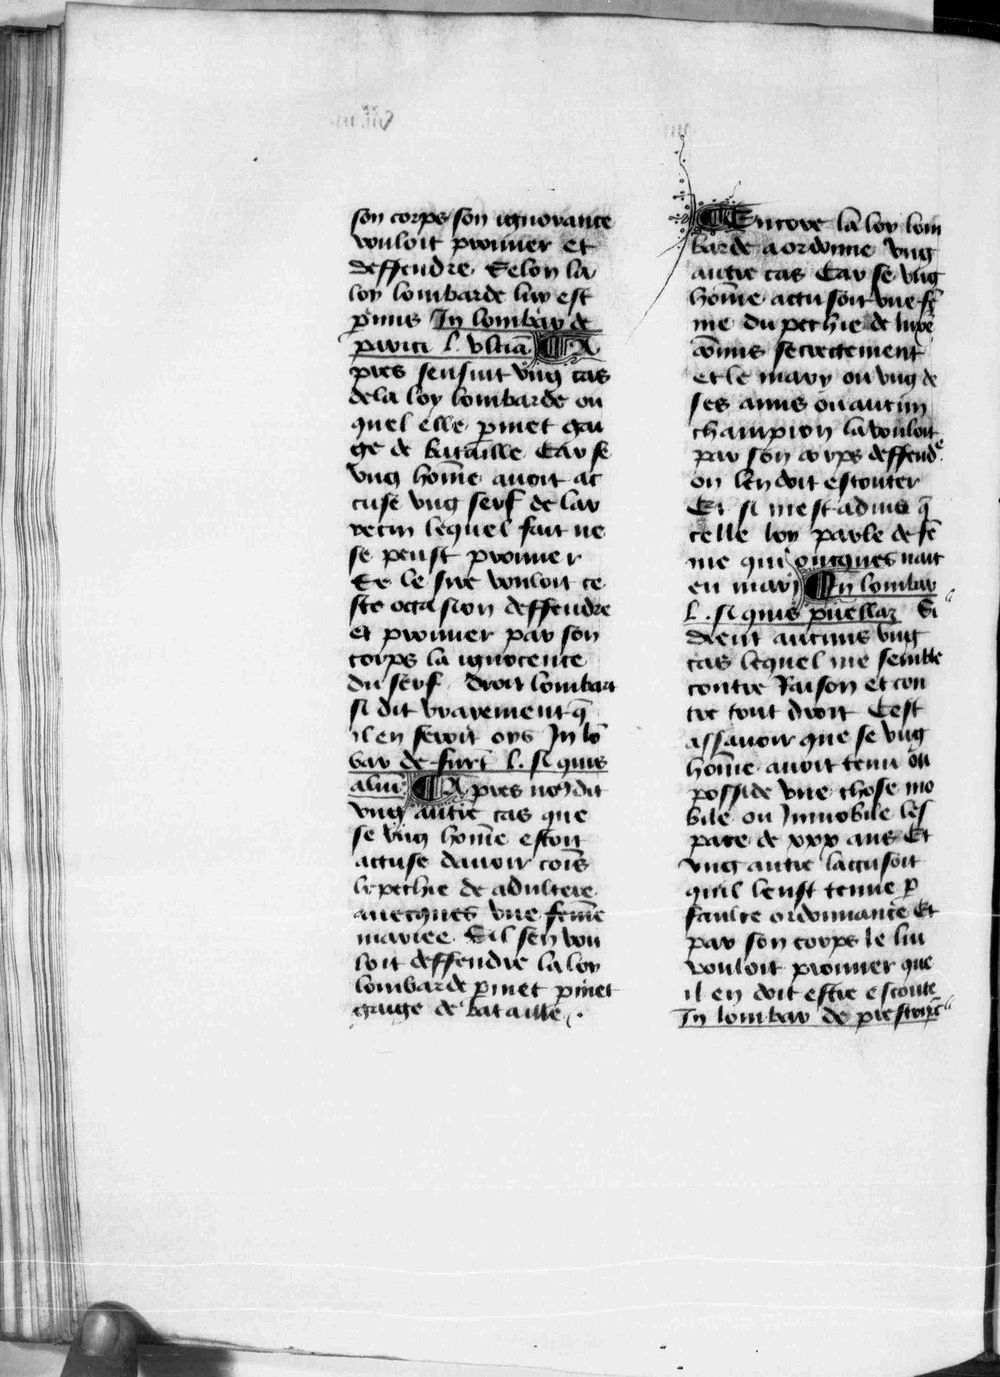 son corps son ignorance
vouloit prouuer et
deffendre. Selon la
loy lombarde luy est
p̱mis In lombar de
parici l. vltia̅ ¶ A
pres sensuit vng cas
de la loy lombarde ou
quel elle p̱met gai
ge de bataille Car se
vng hom̅e auoit ac
cuse vng serf de lar
recin lequel fait ne
se peust prouuer
Et le sire vouloit ce
ste occasion deffendre
et prouuer par son
corps la ignocence
du serf. droit lombart
si dit vrayement q̅
il en seroit oys In lo̅
bar de furt̅ l. si quis
aliu̅ ¶ Apres no9 dit
vng autre cas que
se vng hom̅e estoit
accuse dauoir com̅s
le pechie de adultere
auecques vne fem̅e
mariee. Sil sen vou
loit deffendre la loy
lombarde p̱met p̱met
gaige de bataille.
¶ Encore la loy lom
barde a ordonne vng
autre cas Car se vng
hom̅e accusoit vne fe̅
me du pechie de luxe̅
com̅is secretement
et le mary ou vng de
ses amis ou aucun
champion la vouloit
par son corps deffendre
on len doit escouter
Et si mest aduis q̅
celle loy parle de fe̅
me qui oncques nait
eu mary ¶ In lombar
l. si quis puellaz Si
dient aucuns vng
cas lequel me semble
contre Raison et con
tre tout droit Cest
assauoir que se vng
hom̅e auoit tenu ou
posside vne chose mo
bile ou Inmobile les
pace de xxx ans Et
vng autre laccusoit
quil leust tenue p̱
faulte ordonnance Et
par son corps le lui
vouloit prouuer que
il en doit estre escoute
In lombar de prescript̅